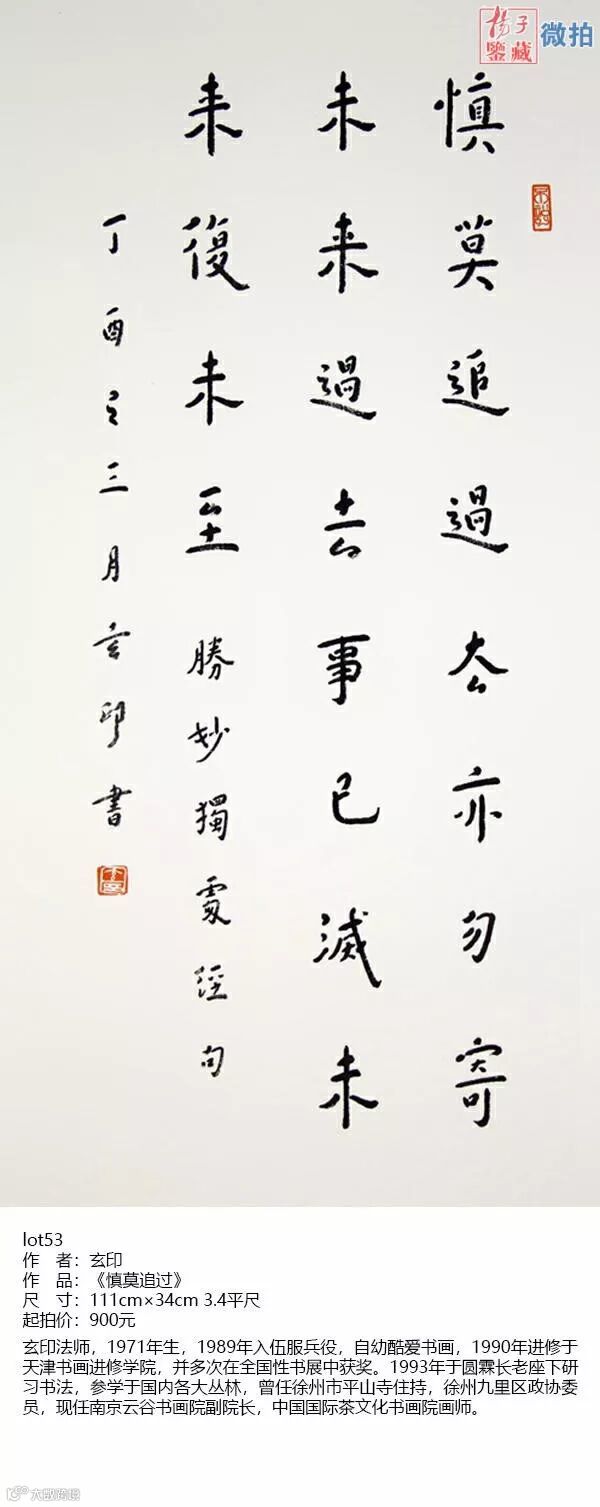 楊子
鑒藏
微拍
慎莫追過去亦勿寄
未来過去事已滅未
来復未至 勝妙獨處經句
丁酉之三月玄印書
lot53
作 者：玄印
作 品：《慎莫追过》
尺 寸：111cm×34cm 3.4平尺
起拍价：900元
玄印法师，1971年生，1989年入伍服兵役，自幼酷爱书画，1990年进修于
天津书画进修学院，并多次在全国性书展中获奖。1993年于圆霖长老座下研
习书法，参学于国内各大丛林，曾任徐州市平山寺住持，徐州九里区政协委
员，现任南京云谷书画院副院长，中国国际茶文化书画院画师。
大数跨境